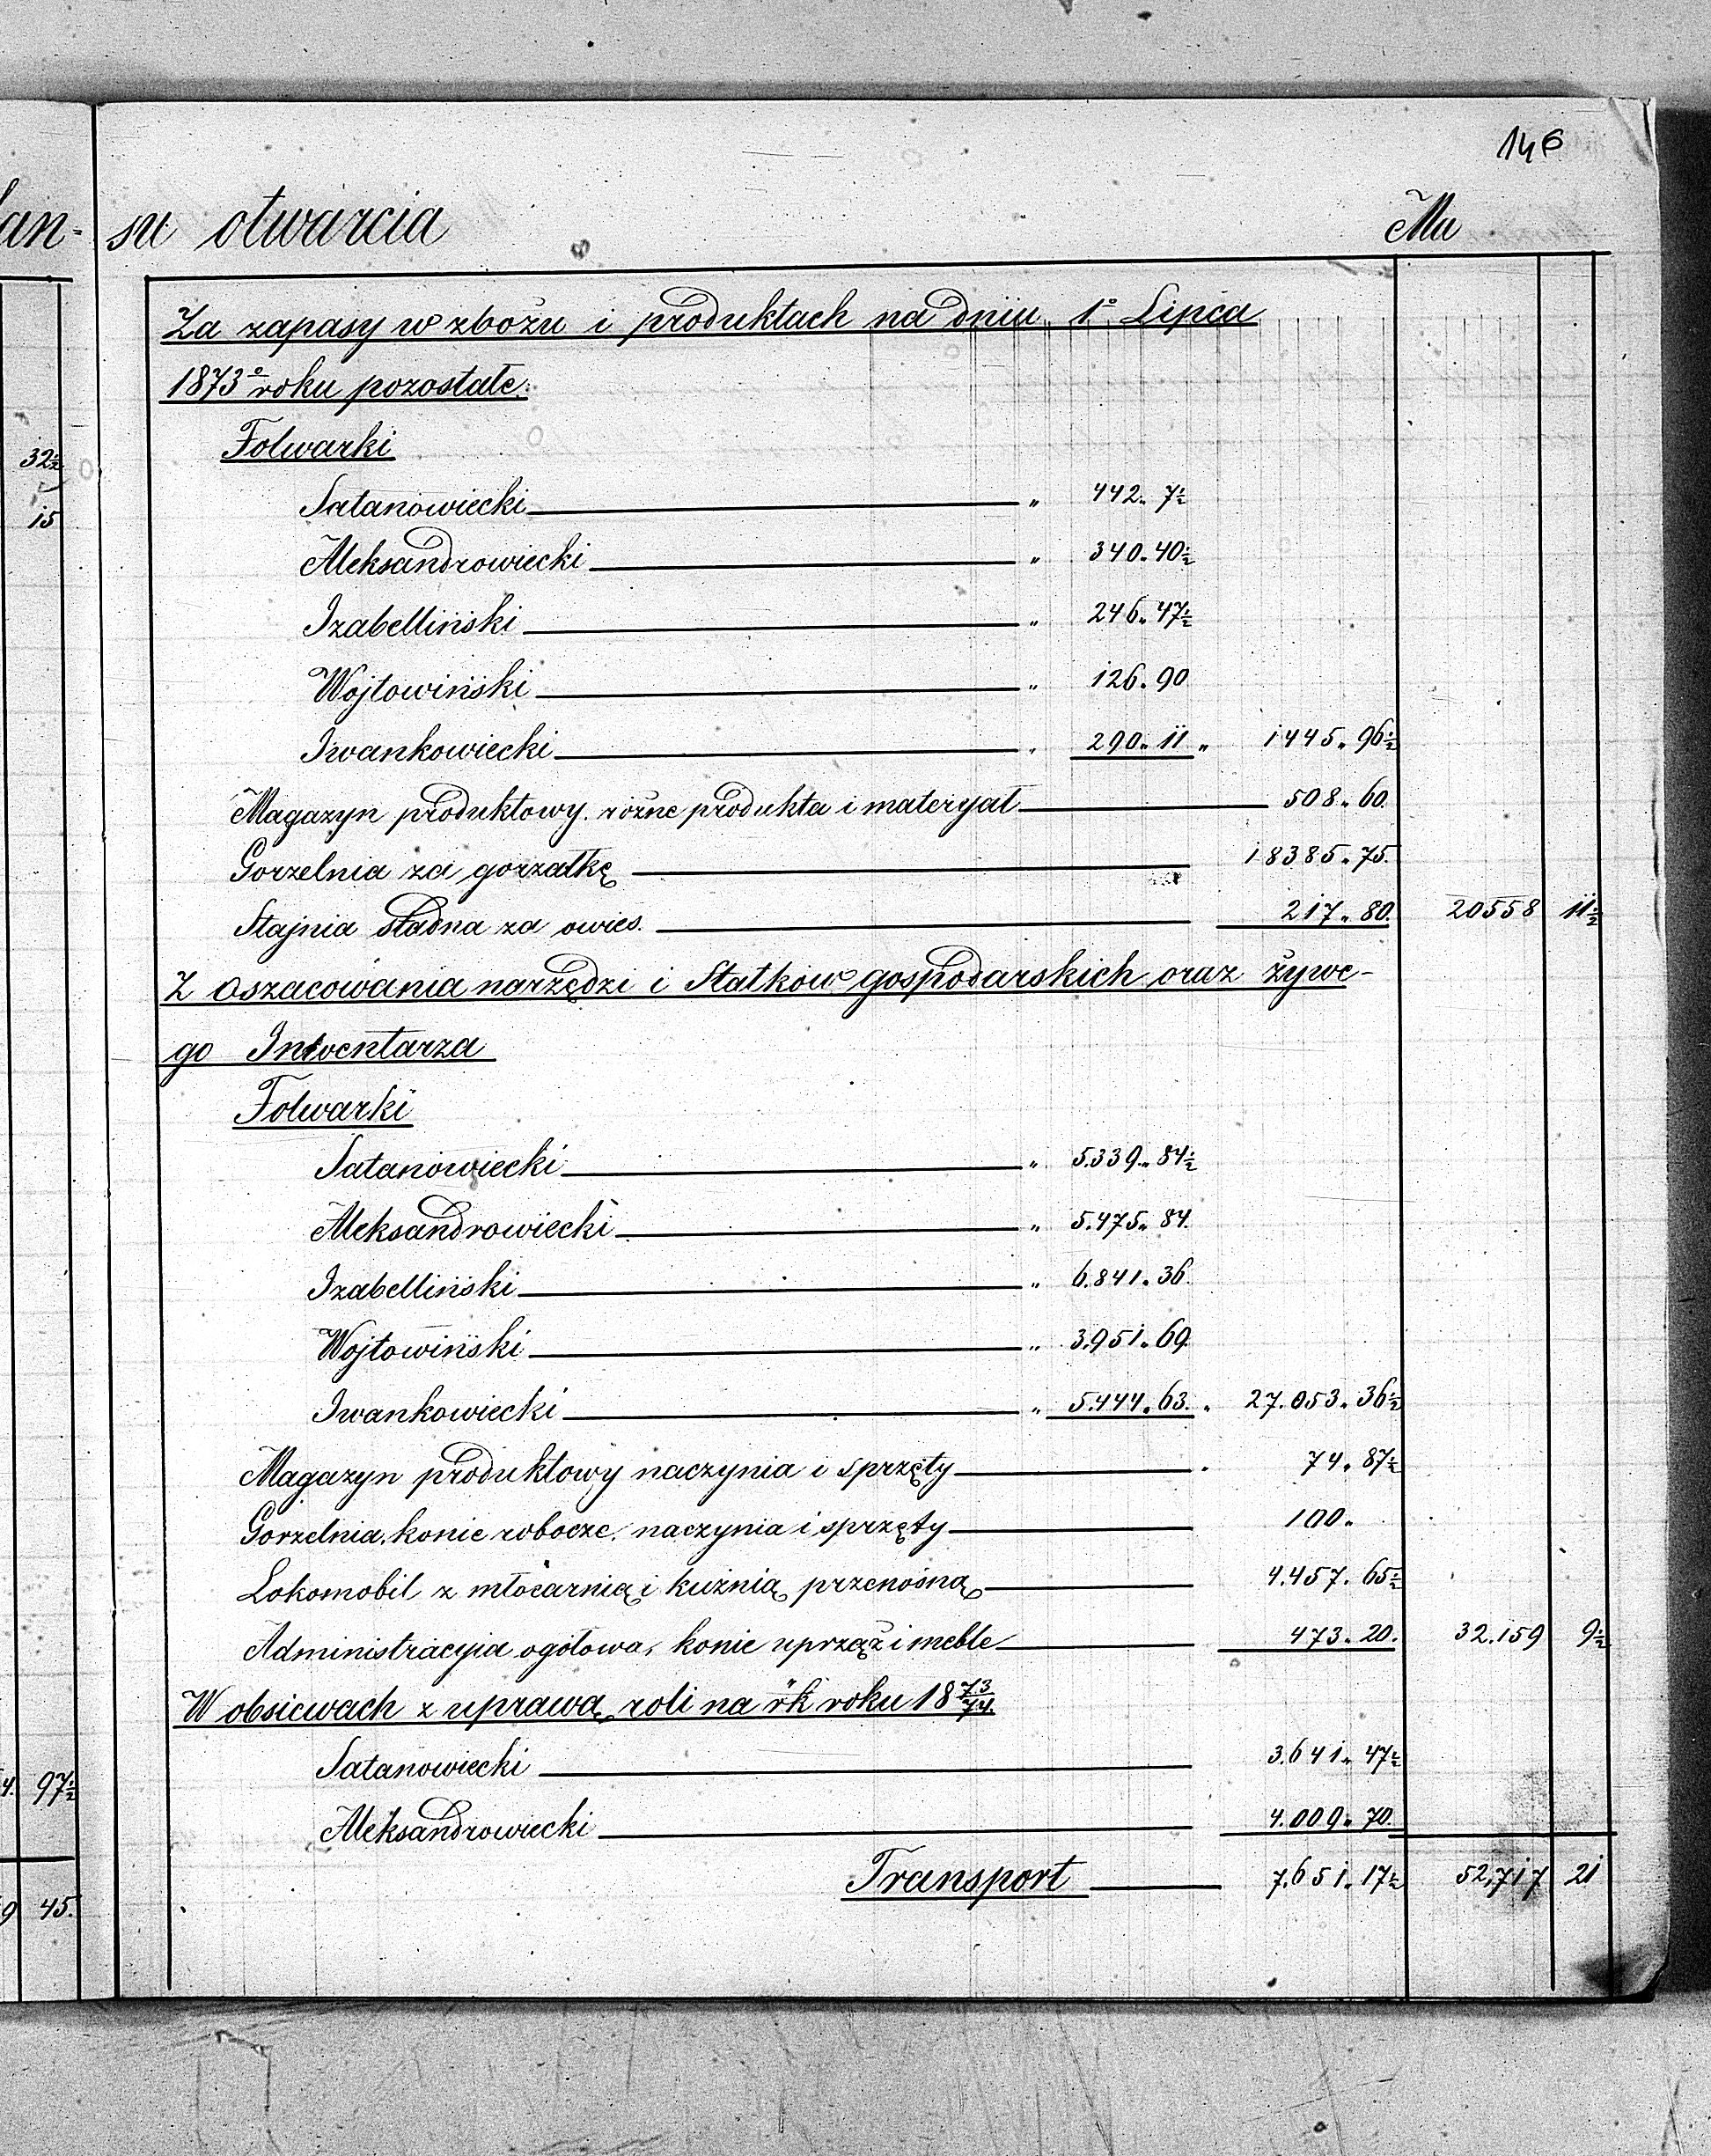 146
lan- su otwarcia Mu
Za zapasy w zbożu i produktach na dniu 1º Lipca
1873º roku pozostałe.
Folwarki
32½
Satanowiecki „ 442. 7½
15
Aleksandrowiecki „ 340. 40½
Izabelliński „ 246. 47½
Wojtowiński „ 126. 90
Iwankowiecki „ 290. 11 „ 1445. 96½
Magazyn produktowy. różne produkta i materyał 508. 60.
Gorzelnia za gorzałkę 18385. 75.
Stajnia stadna za owies. 217. 80. 20558 11½
Z oszacowania narzędzi i Statków gospodarskich oraz żywe-
go Inwentarza
Folwarki
Satanowiecki „ 5.339. 84½
Aleksandrowiecki „ 5.475. 84.
Izabelliński „ 6.841. 36.
Wojtowiński „ 3.951. 69.
Iwankowiecki „ 5.444. 63. „ 27.053. 36½
Magazyn produktowy naczynia i sprzęty 74. 87½
Gorzelnia, konie robocze, naczynia i sprzęty 100.
Lokomobil z młocarnią i kuźnią przenośną 4.457. 65½
Administracyja ogółowa, konie uprząż i meble 473. 20. 32.159 9½
W obsiewach z uprawą roli na rk roku 18 73/74.
Satanowiecki 3.641. 47½
4. 97½
Aleksandrowiecki 4.009. 70.
Transport 7.651. 17½ 52,717 21
9 45.